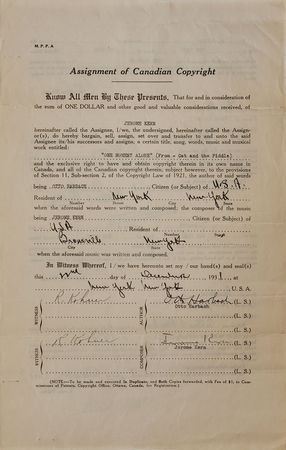 M. P. P. A.
Assignment of Canadian Copyright
Know All Men By These Presents, That for and in consideration
of the sum of ONE DOLLAR and other good and valuable considerations received, of
JEROME KERN
hereinafter called the Assignee, I/we, the undersigned, hereinafter called the Assign-
or(s), do hereby bargain, sell, assign, set over and transfer to and unto the said
Assignee its/his successors and assigns, a certain title, song, words, music and musical
work entitled:
"ONE MOMENT ALONE" (From - Cat and the Fiddle)
and the exclusive right to have and obtain copyright therein in its/his own name in
Canada, and all of the copyright therein for Canada, subject, however, to the provisions
of Section 11, Sub-section 2, of the Copyright Law of 1921, the author of said words
being OTTO HARBACH Citizen (or Subject) of U.S.A.
Resident of New York New York
Number Street City State
when the aforesaid words were written and composed, the composer of said music
being JEROME KERN Citizen (or Subject) of
USA Resident of
Number Street
Bronxville New York
City State
when the aforesaid music was written and composed.
In Witness Whereof, I/we have hereunto set my/our hand(s) and seal(s)
this day of December 1931 at
New York New York U. S. A.
Otto Harbach (L. S.)
Otto Harbach
WITNESS
AUTHOR
(L. S.)
(L. S.)
Jerome Kern (L. S.)
Jerome Kern
WITNESS
COMPOSER
(L. S.)
(L. S.)
(NOTE:—To be made and executed in Duplicate, and Both Copies forwarded, with Fee of $1, to Com-
missioner of Patents, Copyright Office, Ottawa, Canada, for Registration.)